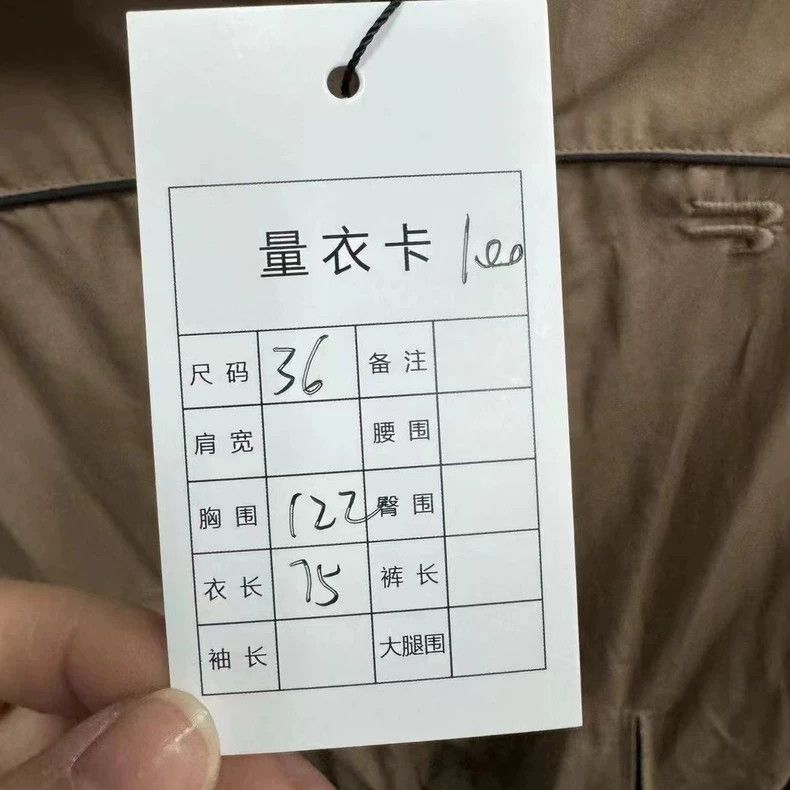 量衣卡 100
尺码 36 备注
肩宽 腰围
胸围 122 臀围
衣长 75 裤长
袖长 大腿围